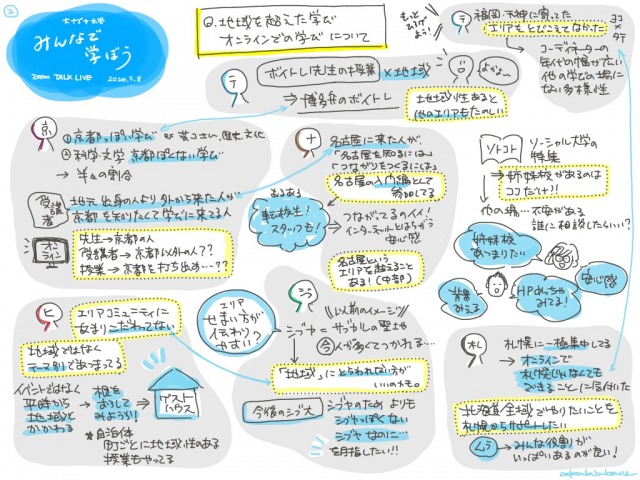 2
大ナゴヤ大学
みんなで
学ぼう
ZOOM TALK LIVE 2020.5.8
Q.地域を超えた学び
オンラインでの学び について
もっと
ひろげ
よう!
テ
福岡・天神に寄ってた
エリアをとびこえてなかった
コーディネーターの
年代や幅が広い
他の学びの場に
ない多様性
テ
ボイトレ先生の授業 × 地域
⇒ 博多弁のボイトレ
よかよ〜
地域性あると
他のエリアもたのしい
京
①京都っぽい学び
②科学・文学 京都ぽくない学び
→ 半々の割合
受講者
地元出身の人より外から来た人が
京都を知りたくて学びに来る人
オンライン
先生→京都の人
受講者→京都以外の人??
授業→京都を打ち出め…??
ナ
名古屋に来た人が、
「名古屋を知るには」
「つながりをつくるには」
名古屋の入門編として
参加してる
あるある
転校生!
スタッフも!
つながってるの人!
インターネットとはちがう
安心感
名古屋という
エリアを超えること
ある!(中部)
ソトコト
ソーシャル大学の
特集
⇒姉妹校があるのは
ココだけ!!
他の場…不安がある
誰に相談したらいい?
姉妹校
あつまりたい
背景
みえる
HPめっちゃ
みてる!
安心感
ヒ
エリアコミュニティに
あまりこだわってない
地域ではなく
テーマ別であつまってる
イベントではなく
平時から
地域と
かかわる
→ 根を
おろして
みよう!
ゲスト
ハウス
*自治体
町ごとに地域性のある
授業もやってる
エリア
せまい方が
伝わりっ
やすい?
シブ
以前のイメージ
シブヤ=サブカルの聖地
今 人が多くてつかれる…
「地域」にとらわれない方が
いいのかも。
今後のシブ大
シブヤのためよりも
シブヤっぽくない
シブヤなのに…
を目指したい!!
札
札幌に一極集中してる
→オンラインで
札幌じゃなくても
できることに気付いた
北海道全域でやりたいことを
札幌からサポートしたい
ムラ→みんな役割が
いっぱいあるのが良い!